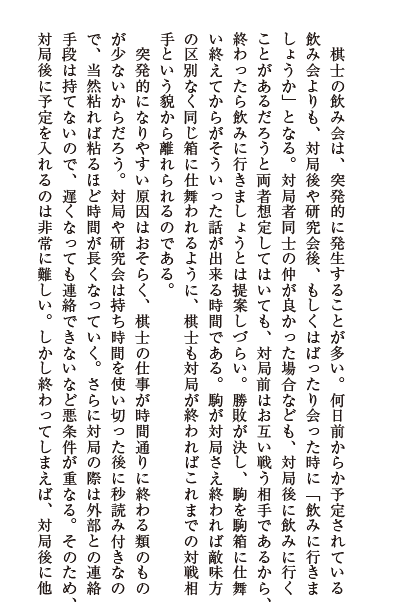 棋士の飲み会は、突発的に発生することが多い。何日前からか予定されている
飲み会よりも、対局後や研究会後、もしくはばったり会った時に「飲みに行きま
しょうか」となる。対局者同士の仲が良かった場合なども、対局後に飲みに行く
ことがあるだろうと両者想定してはいても、対局前はお互い戦う相手であるから、
終わったら飲みに行きましょうとは提案しづらい。勝敗が決し、駒を駒箱に仕舞
い終えてからがそういった話が出来る時間である。駒が対局さえ終われば敵味方
の区別なく同じ箱に仕舞われるように、棋士も対局が終わればこれまでの対戦相
手という貌から離れられるのである。
　突発的になりやすい原因はおそらく、棋士の仕事が時間通りに終わる類のもの
が少ないからだろう。対局や研究会は持ち時間を使い切った後に秒読み付きなの
で、当然粘れば粘るほど時間が長くなっていく。さらに対局の際は外部との連絡
手段は持てないので、遅くなっても連絡できないなど悪条件が重なる。そのため、
対局後に予定を入れるのは非常に難しい。しかし終わってしまえば、対局後に他